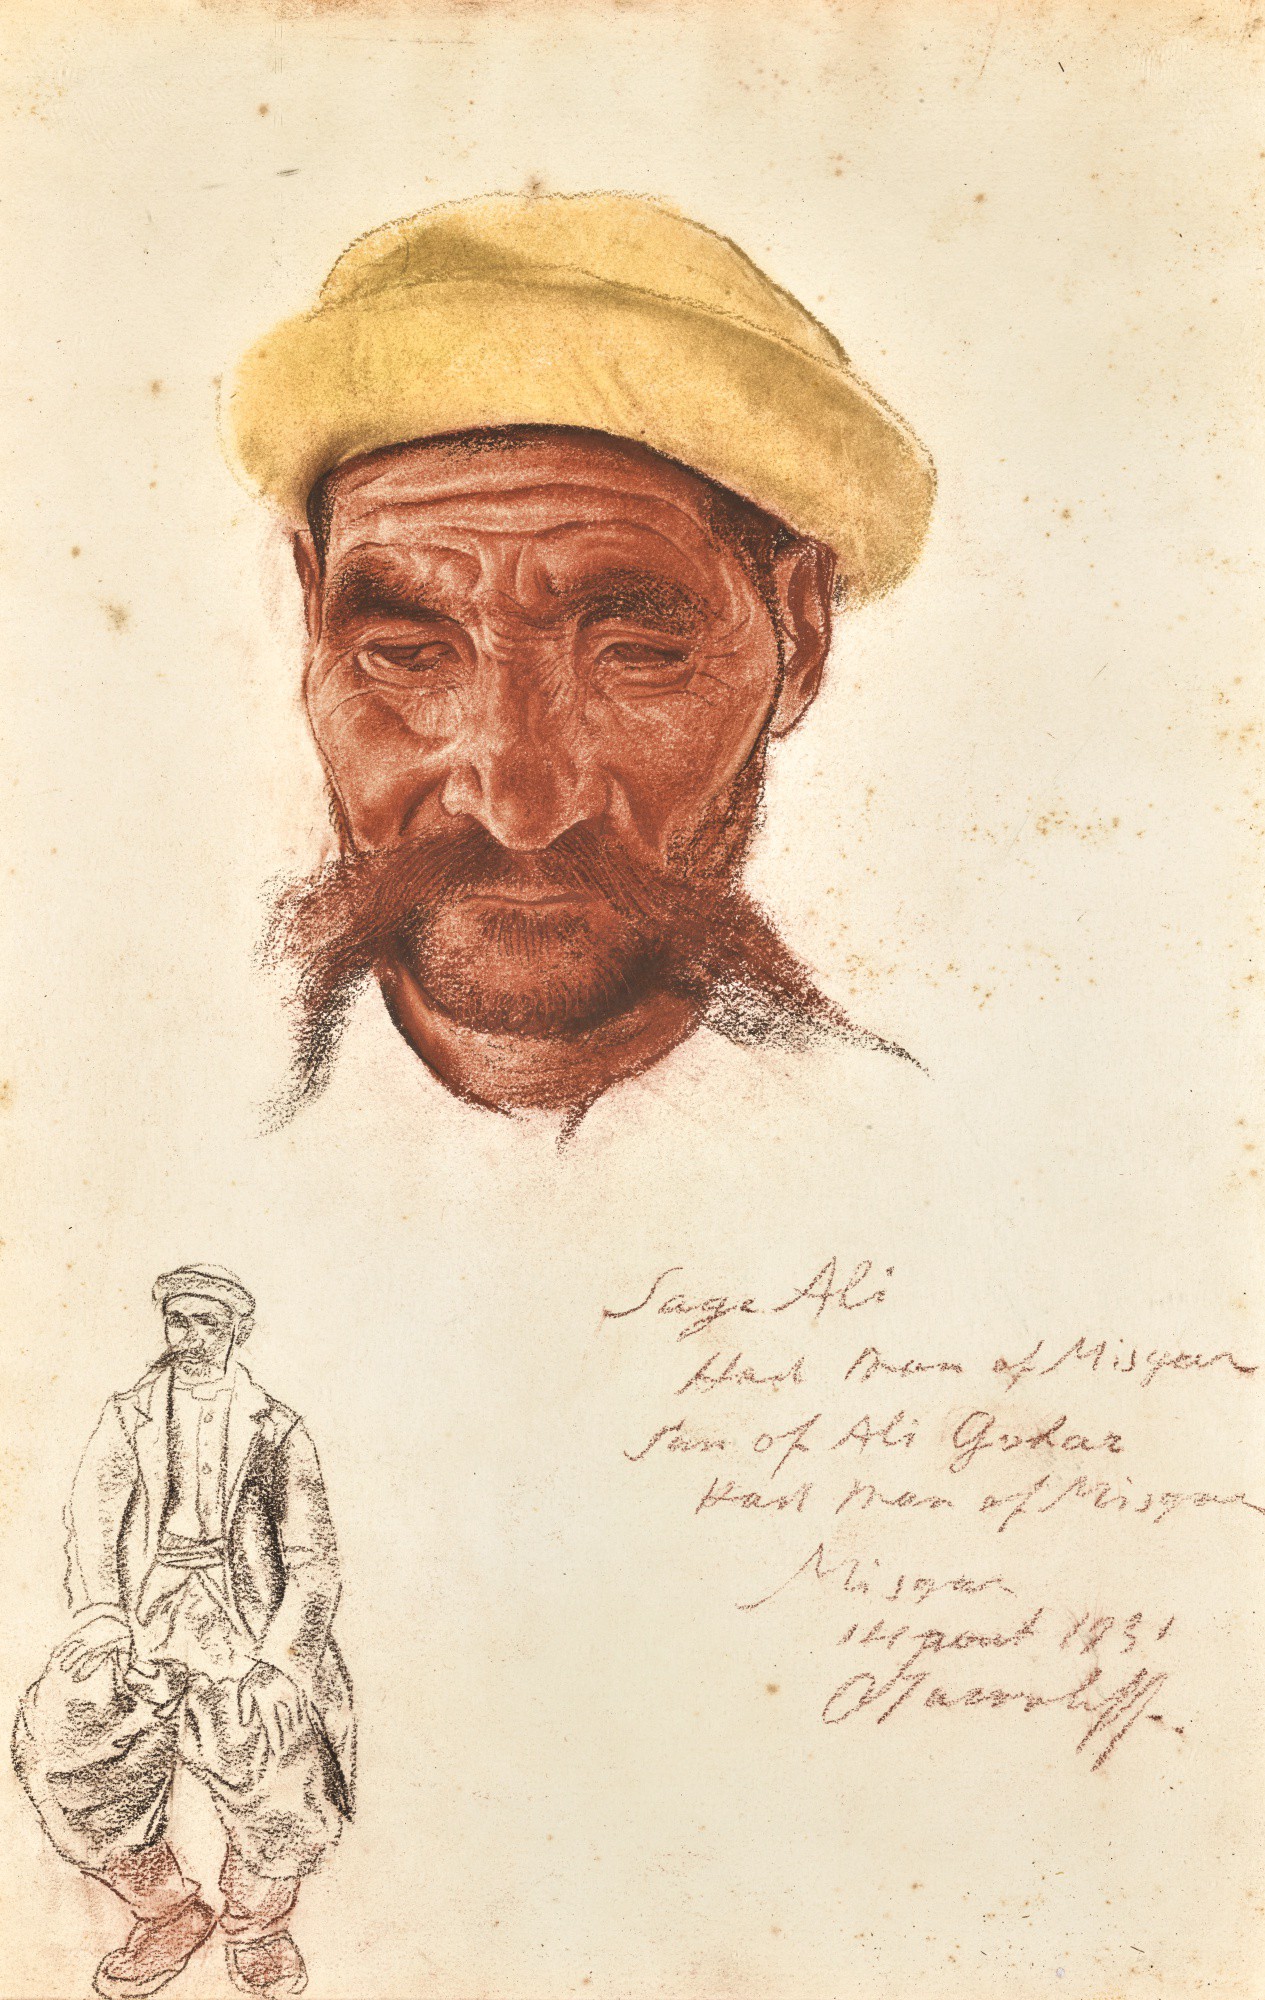 Sage Ali
Had man of Misgar
Sun of Ali Gohar
Had man of Misgar
Misgar
14 aout 1931
A Jacovleff